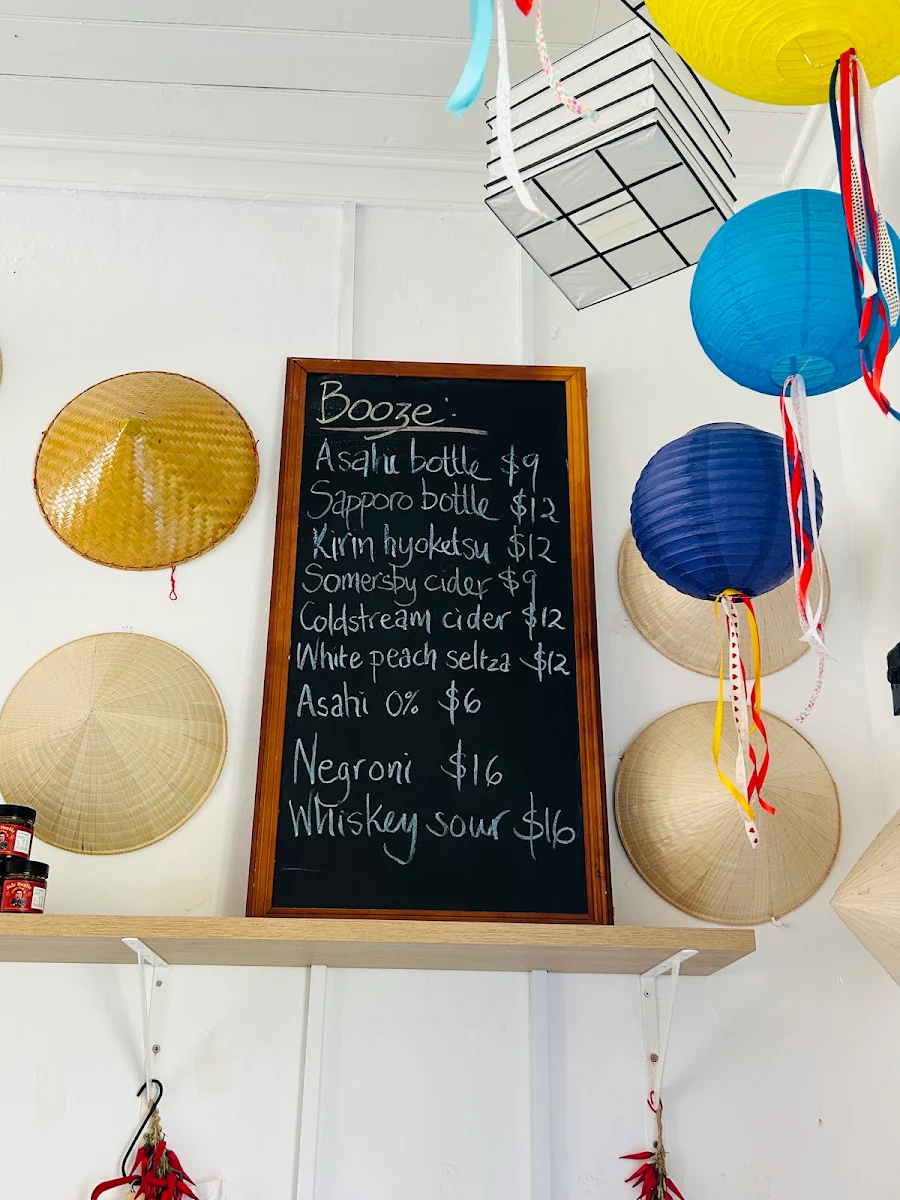 Booze:
Asahi bottle $9
Sapporo bottle $12
Kirin hyoketsu $12
Somersby cider $9
Coldstream cider $12
White peach seltza $12
Asahi 0% $6
Negroni $16
Whiskey sour $16